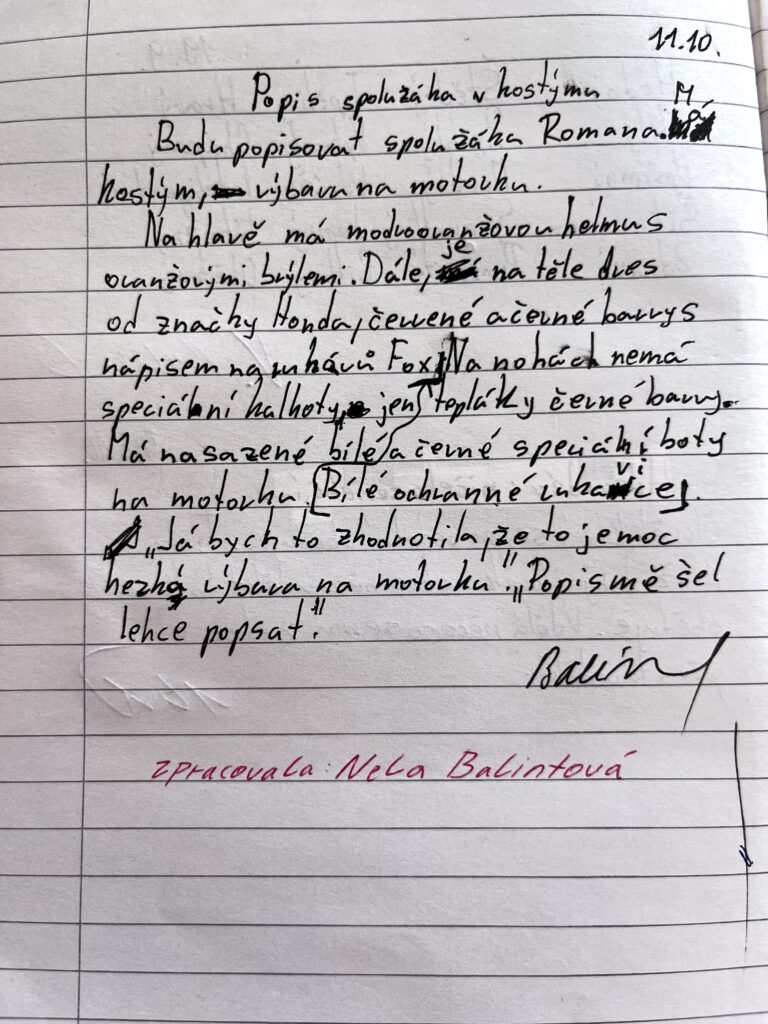 11.10.
Popis spolužáka v kostýmu
Budu popisovat spolužáka Romana. Má
kostým, výbavu na motorku.
Na hlavě má modrooranžovou helmu s
oranžovými brýlemi. Dále, je na těle dres
od značky Honda, červené a černé barvy s
nápisem na rukávů Fox. Na nohách nemá
speciální kalhoty, jen tepláky černé barvy.
Má nasazené bílé a černé speciální boty
na motorku. [Bílé ochranné rukavice].
„Já bych to zhodnotila, že to je moc
hezká výbava na motorku." „Popis mě šel
lehce popsat."
zpracovala: Nela Balintová